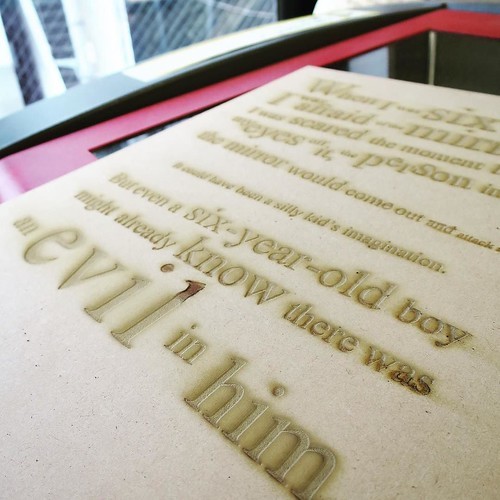 When I was six
I was afraid of mirr
I was scared the moment
eyes the person in
the mirror would come out and attack
It could have been a silly kid's imagination.
But even a six-year-old boy
might already know there was
an evil in him